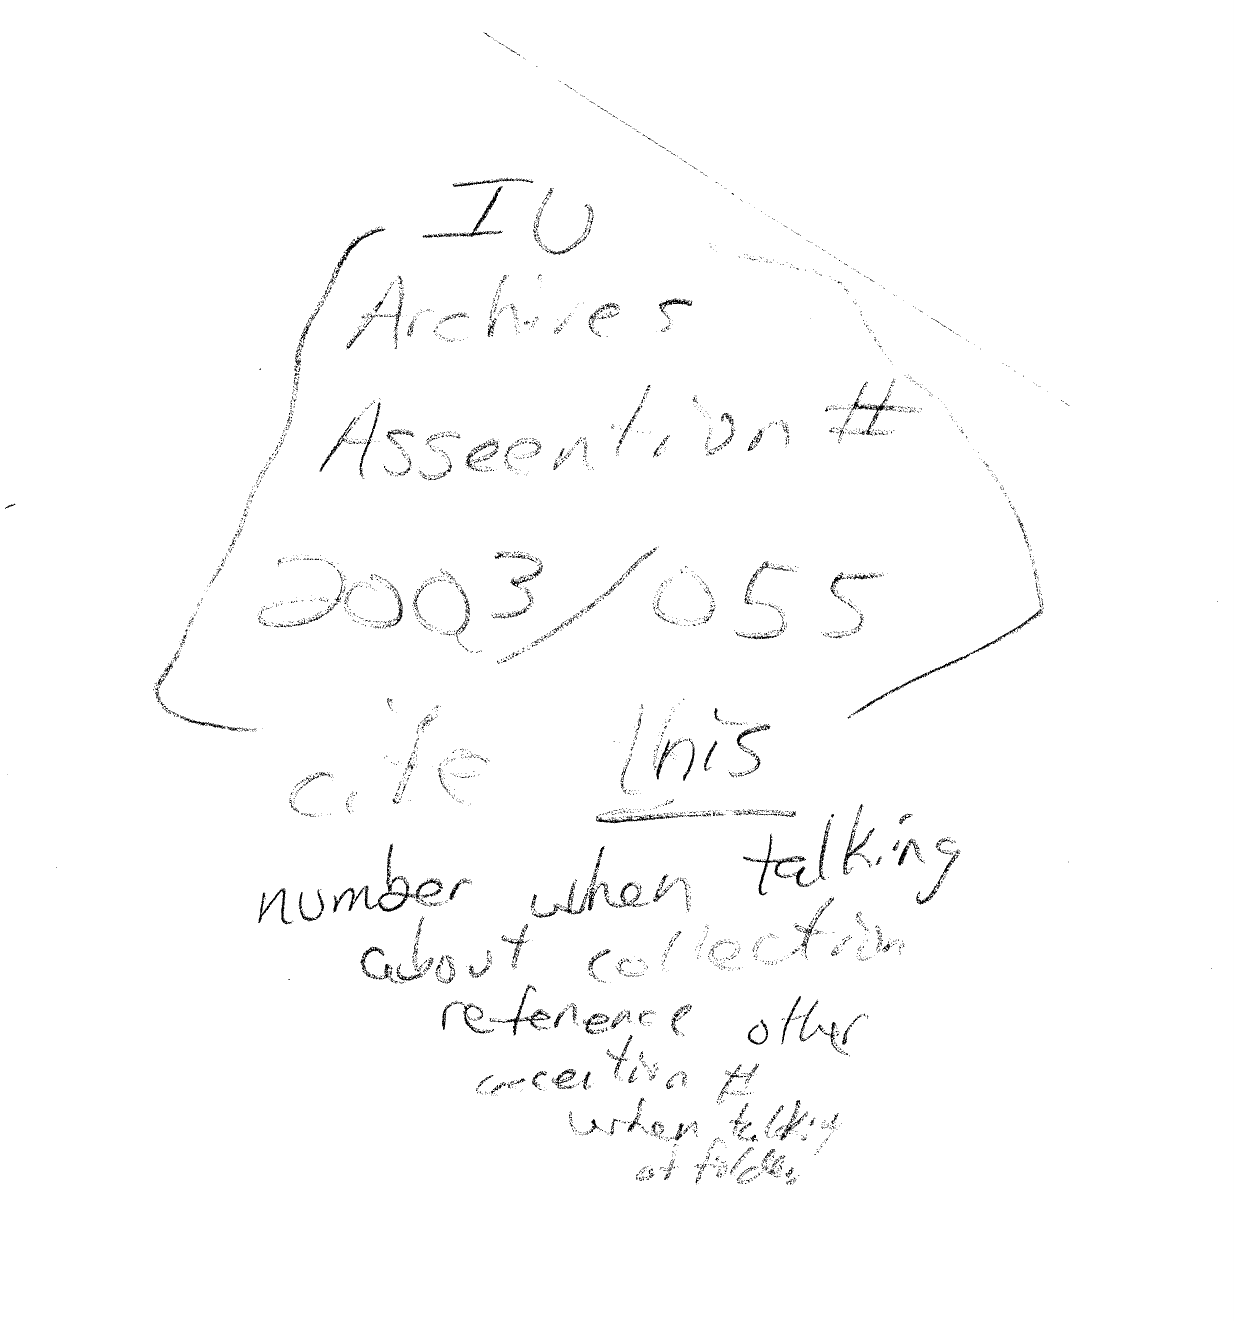 IU
Archives
Asseention #
2003/055
cite this
number when talking
about collection
reference other
#
when talking
at folders